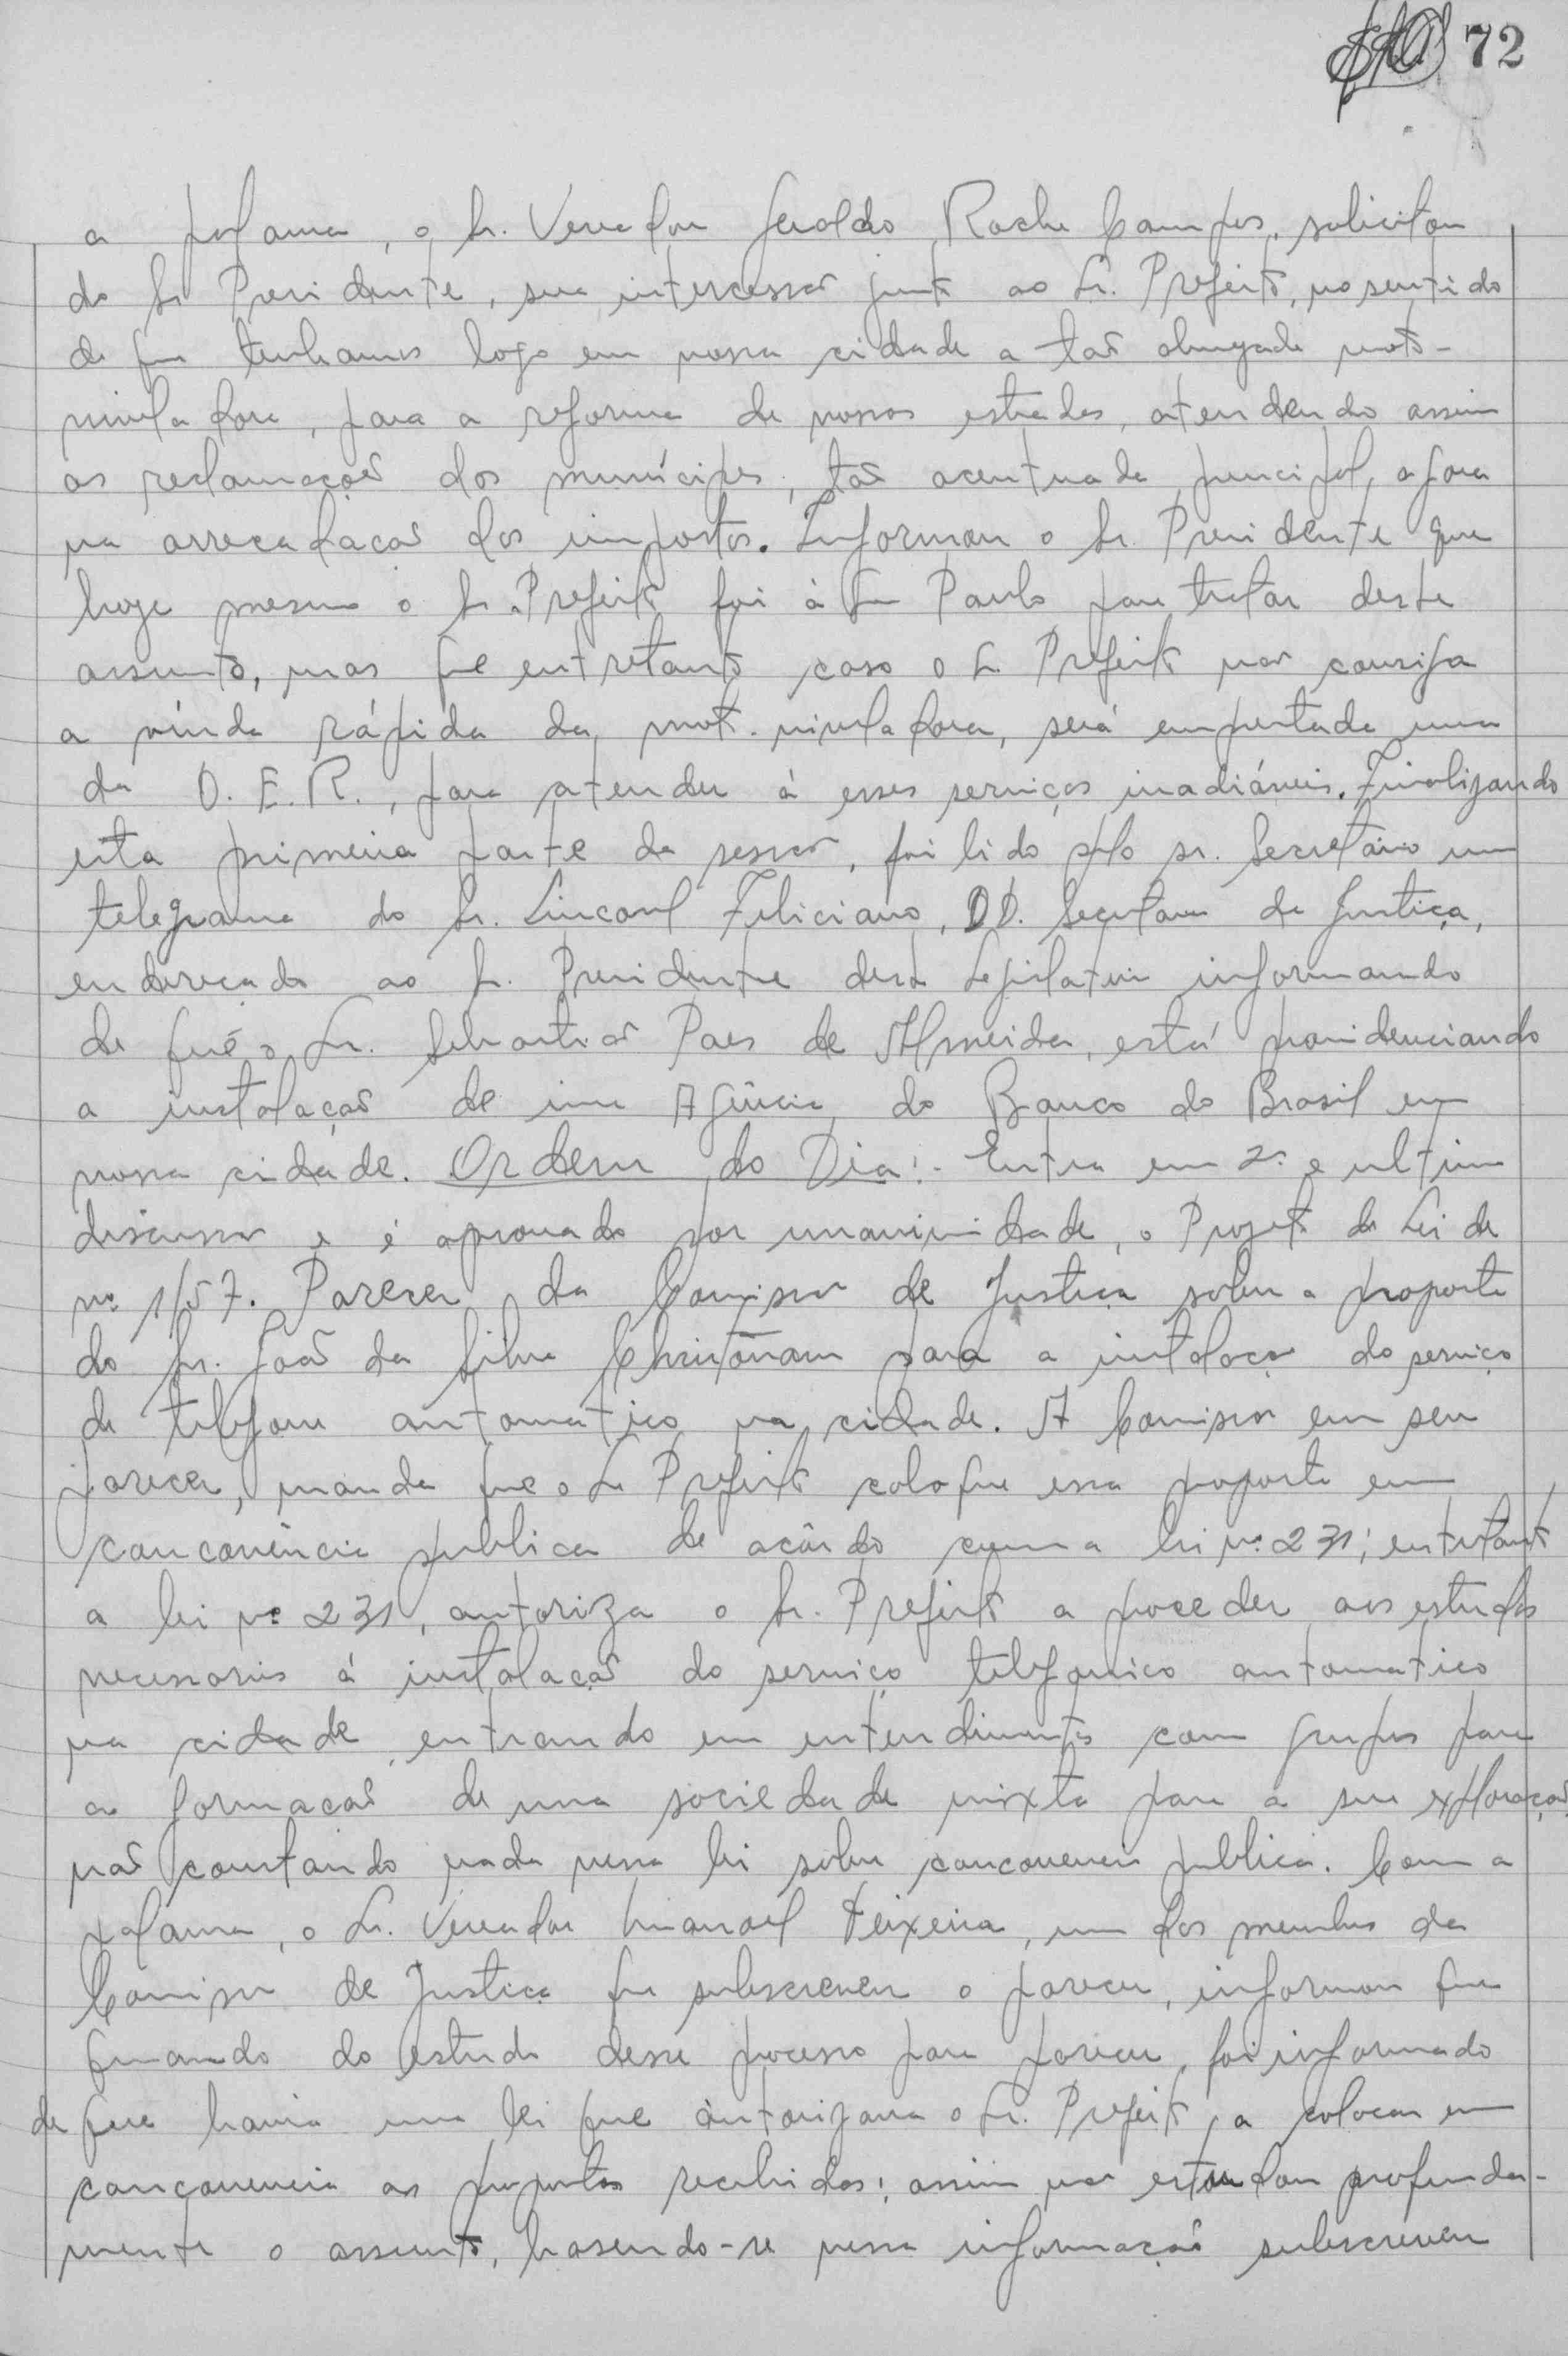 72
a palavra, o Sr. Vereador Geraldo Rocha Campos, solicitou
do Sr Presidente, sua intercessão junto ao Sr. Prefeito, no sentido
de que tenhamos logo em nossa cidade a tão almejada moto-
niveladora, para a reforma de nossas estradas, atendendo assim
as reclamações dos munícipes, tão acentuada principal, agora
na arrecadação dos impostos. Informou o Sr. Presidente que
hoje mesmo o Sr. Prefeito foi à São Paulo para tratar deste
assunto, mas que entretanto caso o Sr. Prefeito não consiga
a vinda rápida da moto-niveladora, será emprestada uma
da D. E. R., para atender à esses serviços inadiáveis. Finalizando
esta primeira parte da sessão, foi lido pelo sr. Secretário um
telegrama do Sr. Lincoul Feliciano, DD. Secretario da Justiça,
endereçado ao Sr. Presidente desta Legislativa informando
de que o Sr. Sebastião Paes de Almeida, está providenciando
a instalação de uma Agência do Banco do Brasil em
nossa cidade. Ordem do Dia:- Entra em 2ª e ultima
discussão e é aprovado por unanimidade, o Projeto de Lei de
nº 1/57. Parecer da Comissão de Justiça sobre a proposta
do Sr. João da Silva Christovam para a instalação do serviço
de telefone automatico na cidade. A Comissão em seu
parecer, manda que o Sr Prefeito coloque essa proposta em
concorrência publica de acôrdo com a lei nº 231; entretanto
a lei nº 231, autoriza o Sr. Prefeito a proceder aos estudos
necessarios á instalação do serviço telefonico automatico
na cidade, entrando em entendimentos com grupos para
a formação de uma sociedade mixta para a sua exploração,
não constando nada nessa lei sobre concorrencia publica. Com a
palavra, o Sr. Vereador Manoel Teixeira, um dos membros da
Comissão de Justiça que subscreveu o parecer, informou que
quando do estudo desse processo para parecer, foi informado
de que havia uma lei que autorizava o Sr. Prefeito, a colocar em
concorrencia as propostas recebidas; assim não estudou profunda-
mente o assunto, baseando-se nessa informação subscreveu